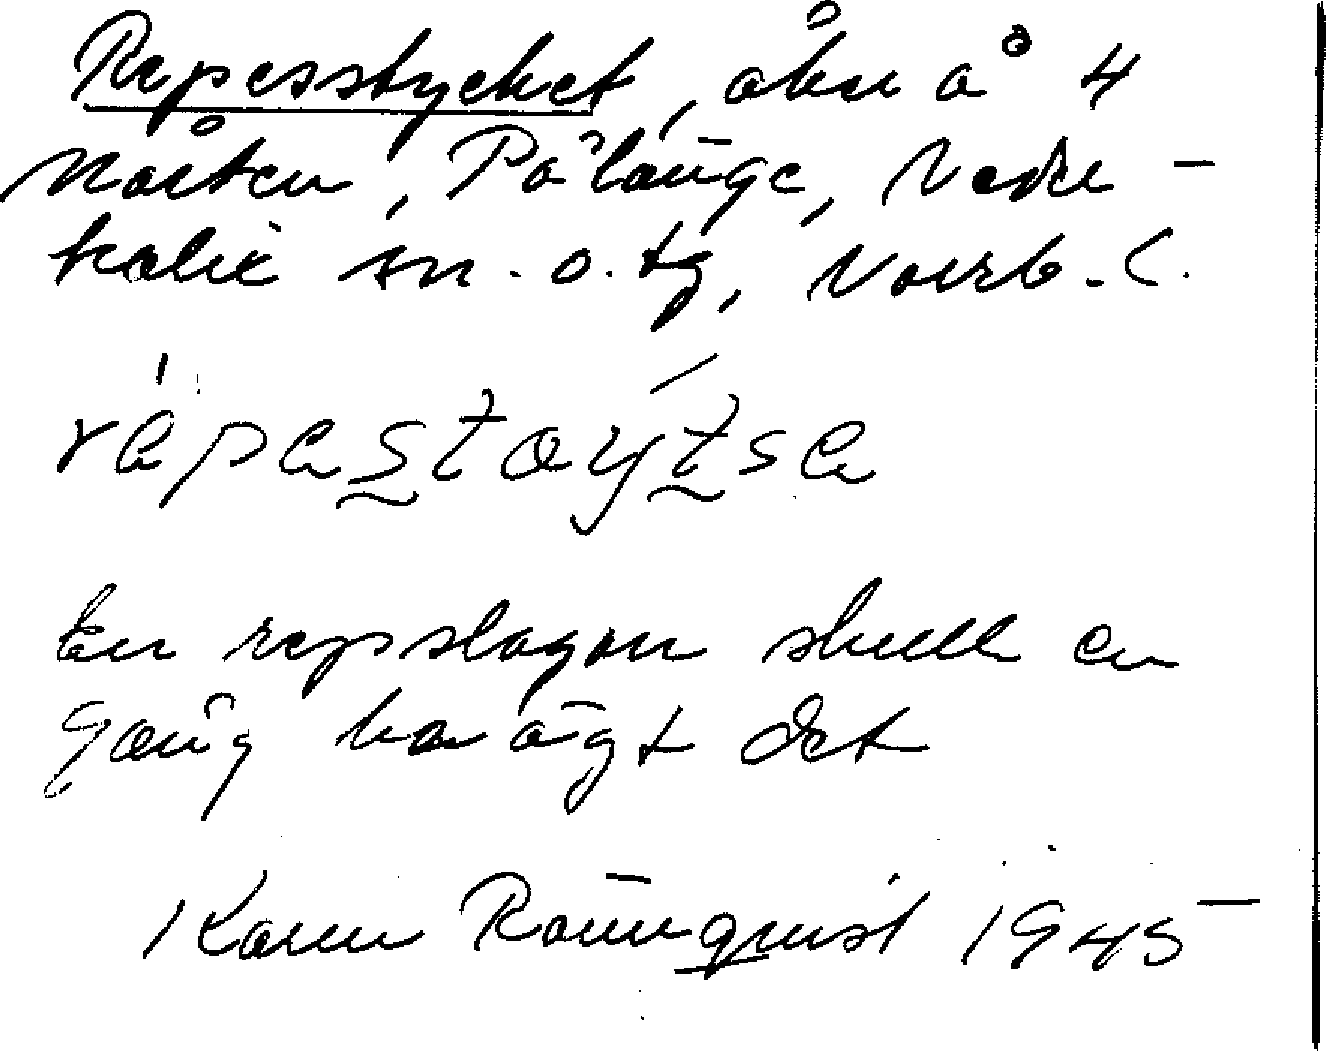 Repesstycket, åker å 4
Nästen, Pålänge, Neder-
kalix sn. o. tg, Norrb. l.
répestoýtse
En repslagare skulle en
gång ha ägt det
Karin Rönnquist 1945